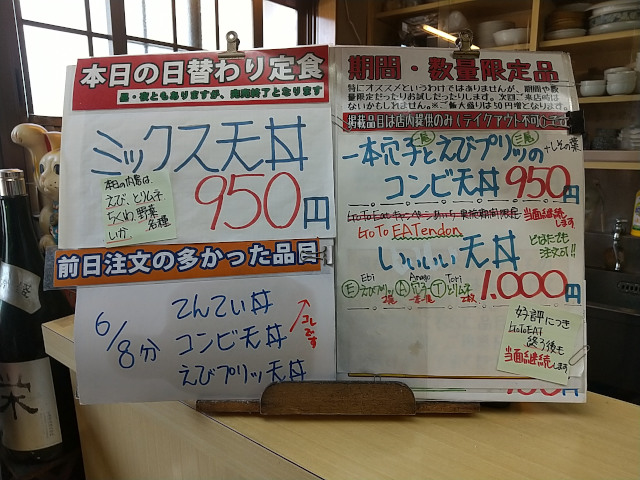 本日の日替わり定食
昼・夜ともありますが、売完終了となります
ミックス天丼
本日の内容は、
えび、とりムネ
ちくわ、野菜
いか、各種
950円
前日注文の多かった品目
6/8分
てんてい丼
コンビ天丼
えびプリッ天丼
コレです
期間・数量限定品
特にオススメというわけではありませんが、期間や数
量限定だったりお試しだったりします。次回ご来店時は
ないかもしれません。※ご飯大盛りは50円増となります。
掲載品目は店内提供のみ(テイクアウト不可)です
一本穴子とえびプリッの
2尾
コンビ天丼 950円
GoToEatキャンペーン
当面継続します
GoTo EATendon
いいいい天丼
どなたでも
注文可!!
Ebi Anago Tori
Ⓔえびプリッ Ⓐ穴子 Ⓣとりムネ
2尾 一本 2枚
1.000円
好評につき
GoToEAT
終了後も
当面継続します
栄